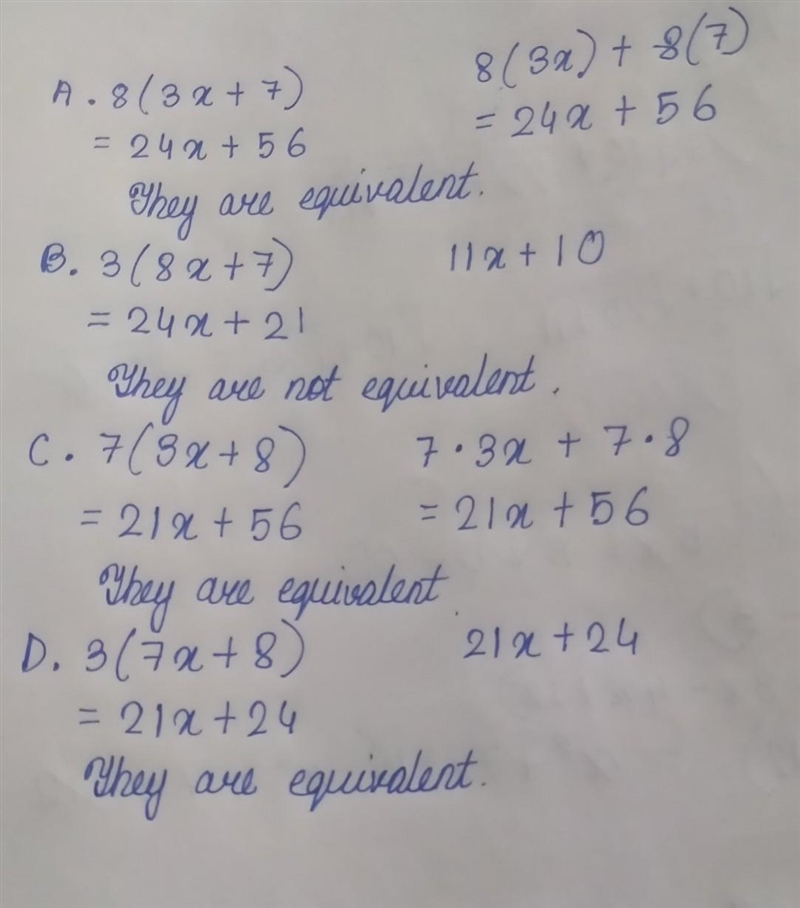 A. 8(3x+7) 8(3x) + 8(7)
= 24x+56 = 24x + 56
They are equivalent.
B. 3(8x+7) 11x+10
= 24x+21
They are not equivalent.
C. 7(3x+8) 7·3x + 7·8
= 21x+56 = 21x+56
They are equivalent
D. 3(7x+8) 21x+24
= 21x+24
They are equivalent.